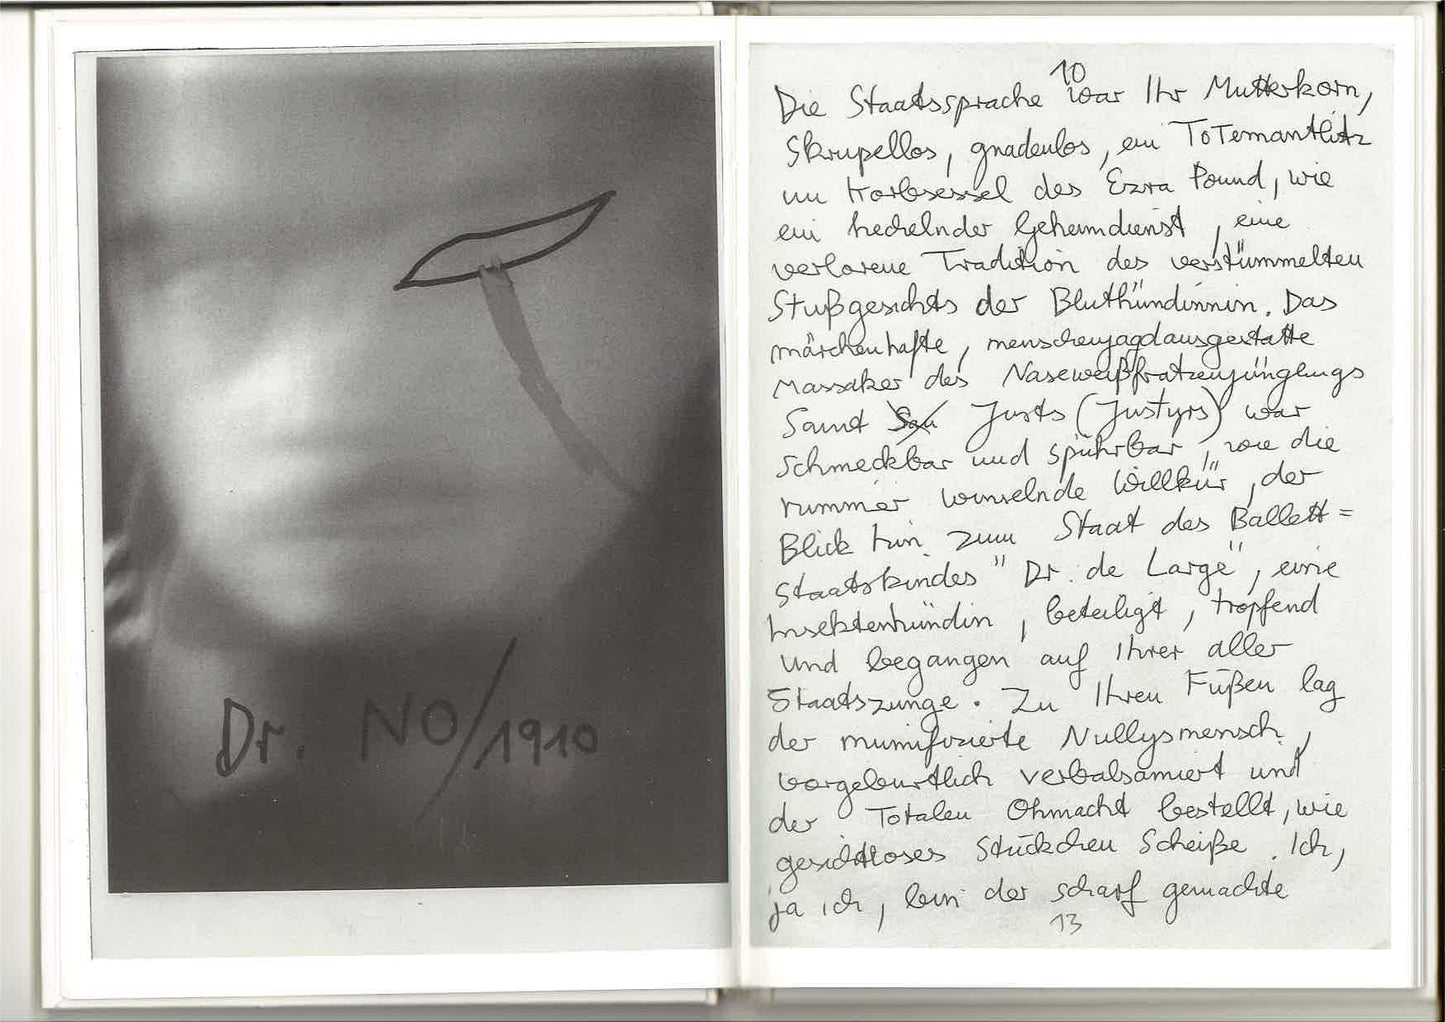 Dr. NO/1910
10
Die Staatssprache war Ihr Mutterkorn,
Skrupellos, gnadenlos, ein Totemantlitz
im Korbsessel des Ezra Pound, wie
ein hechelnder Geheimdienst, eine
verlorene Tradition des verstümmelten
Stußgesichts der Bluthündinnin. Das
märchenhafte, menschenjagdausgestatte
Massaker des Naseweißfratzenjünglings
Sankt Justs (Justyrs) war
schmeckbar und spührbar, wie die
immer winselnde Willkür, der
Blick hin zum Staat des Ballett=
staatskindes "Dr. de Large", eine
Insektenhündin, beteiligt, tropfend
und begangen auf Ihrer aller
Staatszunge. Zu Ihren Füßen lag
der mumifizierte Nullysmensch,
vorgeburtlich verbalsamiert und
der Totalen Ohmacht bestellt, wie
gesichtloses Stückchen Scheiße. Ich,
ja ich, bin der scharf gemachte
13